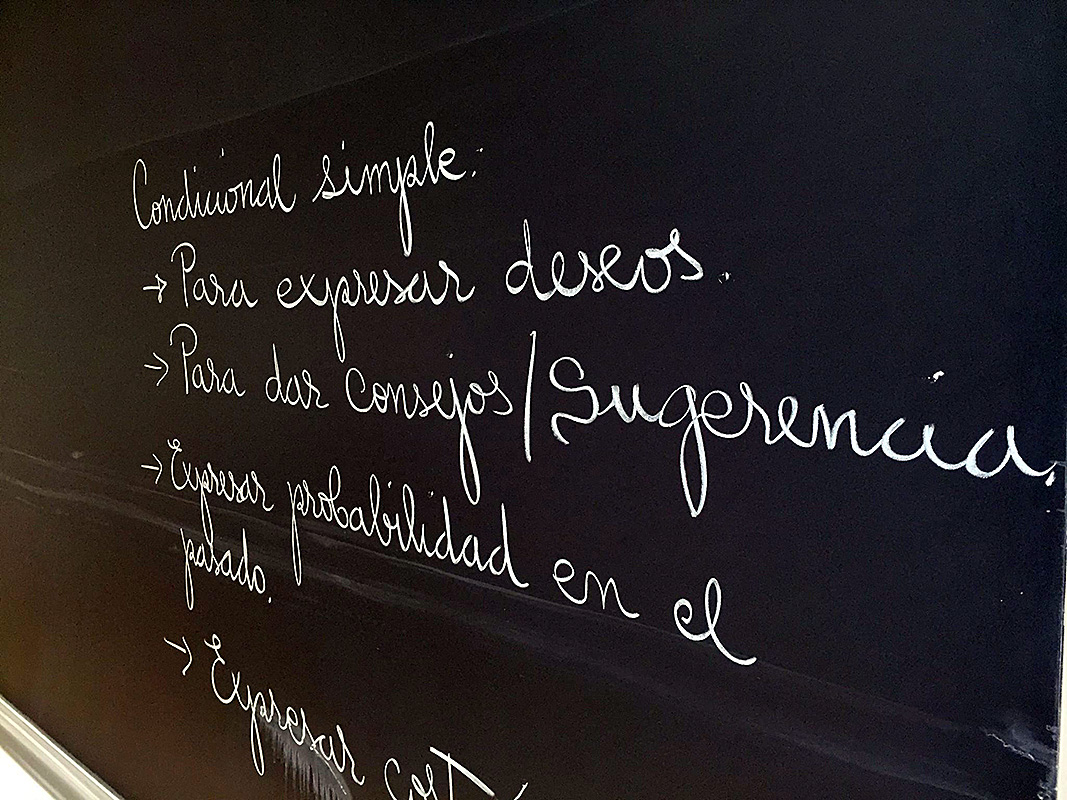 Condicional simple:
→ Para expresar deseos.
→ Para dar consejos/Sugerencia.
→ Expresar probabilidad en el
pasado.
→ Expresar